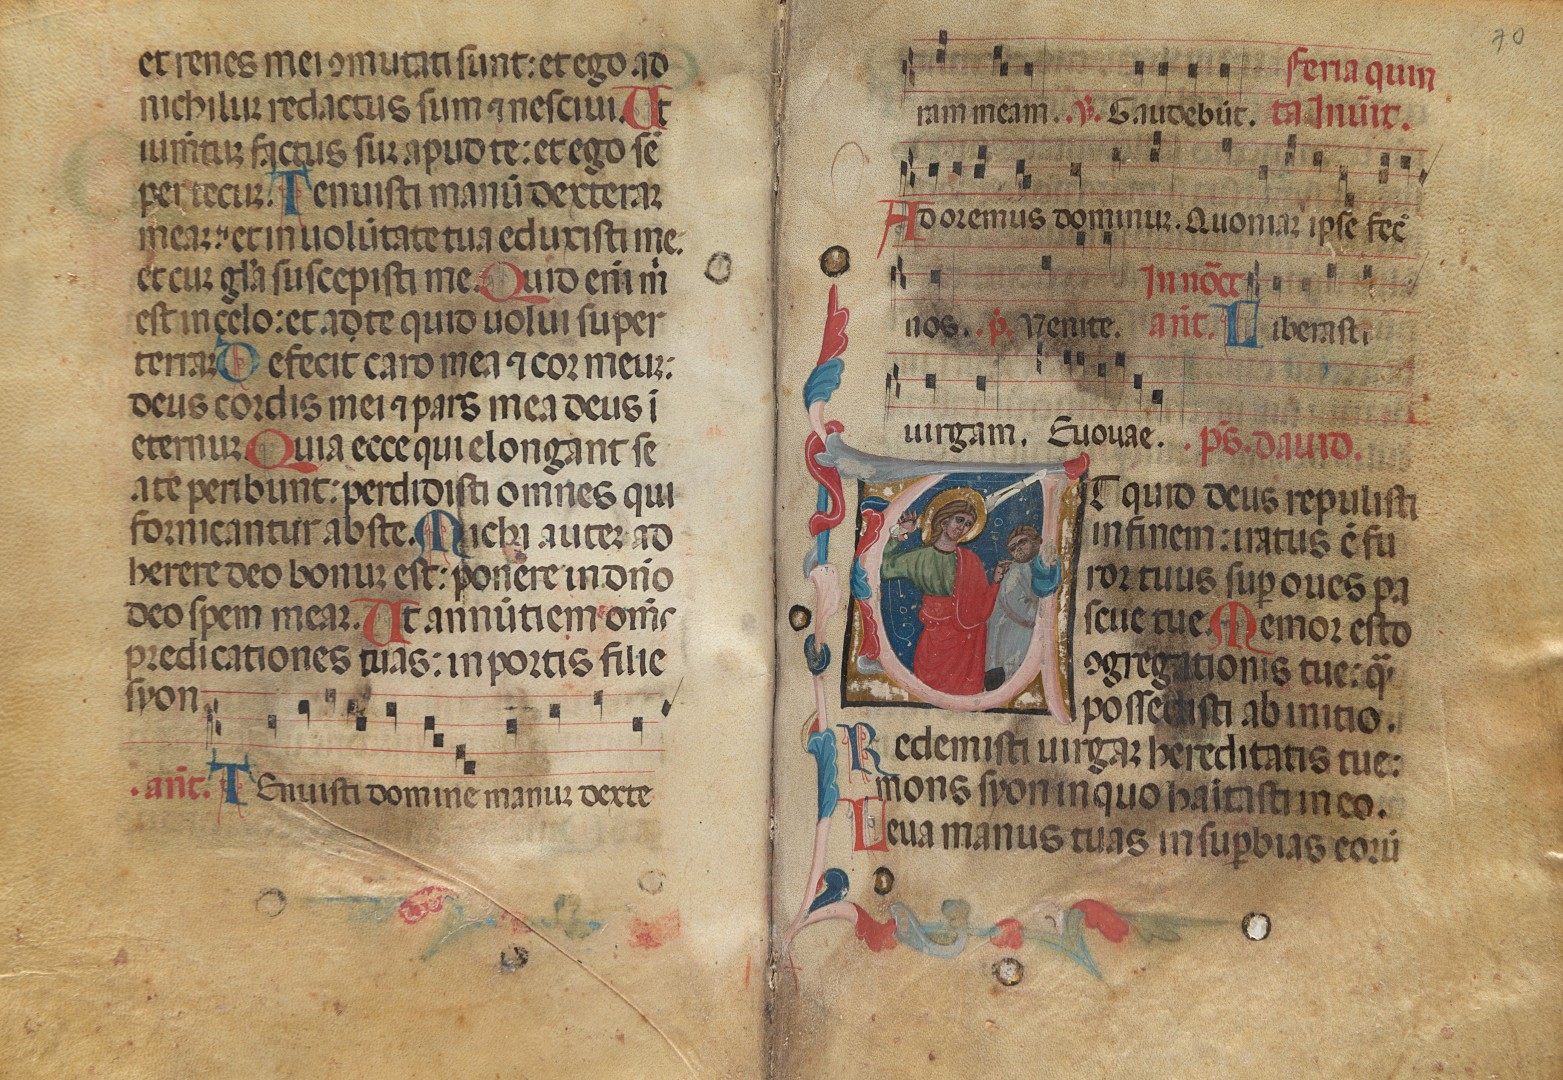 et renes mei ꝯmutati sunt: et ego ad
nichiluꝫ redactus sum ⁊ nesciui. Ut
iumētuꝫ factus suꝫ apud te: et ego sē
per tecuꝫ. Tenuisti manū dexteraꝫ
meaꝫ: et in uolūtate tua eduxisti me.
et cuꝫ gľa suscepisti me. Quid eni m̄
est in celo: et ad te quid uolui super
terraꝫ Defecit caro mea ⁊ cor meuꝫ:
deus cordis mei ⁊ pars mea deus ī
eternuꝫ. Quia ecce qui elongant se
a te peribunt: perdidisti omnes qui
fornicantur abs te. Michi auteꝫ ad
herere deo bonuꝫ est: ponere in dn̄o
deo spem meaꝫ. Ut annūtiem om̄s
predicationes tuas: in portis filie
syon
.añt. Tenuisti domine manuꝫ dexte
70
feria quin
ram meam. ℣. Gaudebūt. ta Inuit̄.
Adoremus dominuꝫ. Quoniaꝫ ipse fec̄
In noct̄
nos. p̄. Venite. añt. Liberasti
uirgam. Euouae. p̄s. dauid.
Ut quid deus repulisti
in finem: iratus ē fu
ror tuus suꝑ oues pa
scue tue. Memor esto
ꝯgregationis tue: q̄
possedisti ab initio.
Redemisti uirgaꝫ hereditatis tue:
mons syon in quo haitasti in eo.
Leua manus tuas in suꝑbias eorū